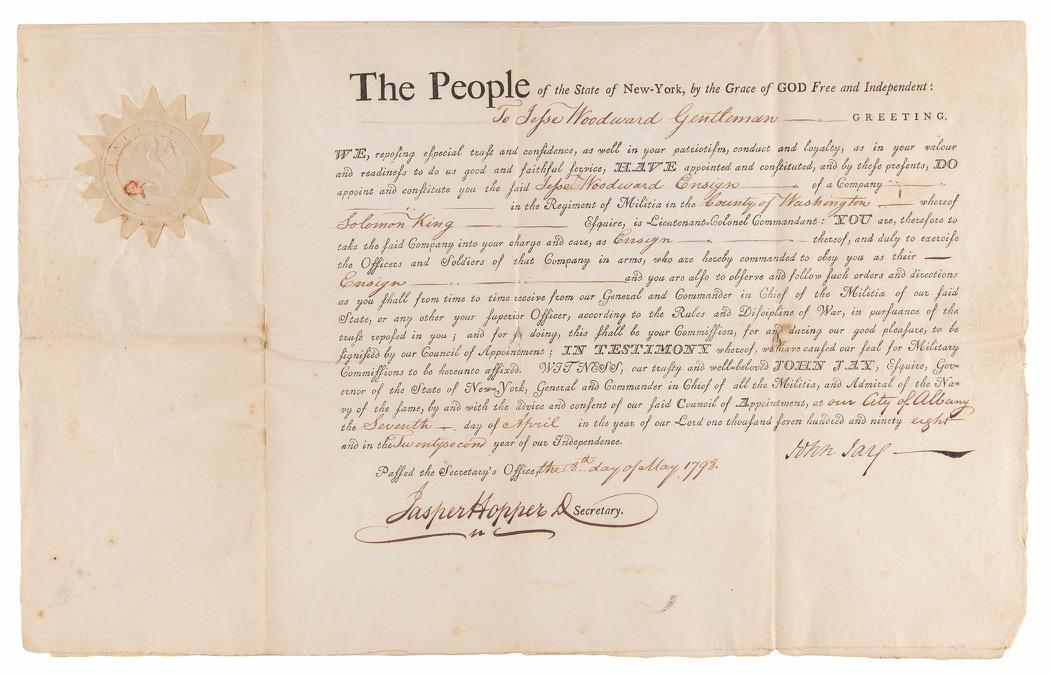 The People of the State of New-York, by the Grace of GOD Free and Independent:
To Jesse Woodward Gentleman GREETING,
WE, repoſing eſpecial truſt and confidence, as well in your patriotiſm, conduct and loyalty, as in your valour
and readineſs to do us good and faithful ſervice, HAVE appointed and conſtituted, and by theſe preſents, DO
appoint and conſtitute you the ſaid Jesse Woodward Ensign of a Company
in the Regiment of Militia in the County of Washington whereof
Solomon King Eſquire, is Lieutenant-Colonel Commandant: YOU are, therefore to
take the ſaid Company into your charge and care, as Ensign thereof, and duly to exerciſe
the Officers and Soldiers of that Company in arms, who are hereby commanded to obey you as their
Ensign and you are alſo to obſerve and follow ſuch orders and directions
as you ſhall from time to time receive from our General and Commander in Chief of the Militia of our ſaid
State, or any other your ſuperior Officer, according to the Rules and Diſcipline of War, in purſuance of the
truſt repoſed in you; and for ſo doing, this ſhall be your Commiſſion, for and during our good pleaſure, to be
ſignified by our Council of Appointment; IN TESTIMONY whereof, we have cauſed our ſeal for Military
Commiſſions to be hereunto affixed. WITNESS, our truſty and well-beloved JOHN JAY, Eſquire, Gov-
ernor of the State of New-York, General and Commander in Chief of all the Militia, and Admiral of the Na-
vy of the ſame, by and with the advice and conſent of our ſaid Council of Appointment, at our City of Albany
the Seventh day of April in the year of our Lord one thouſand ſeven hundred and ninety eight
and in the Twentysecond year of our Independence.
John Jay
Paſſed the Secretary's Office, the 8th day of May 1798.
Jasper Hopper D Secretary.